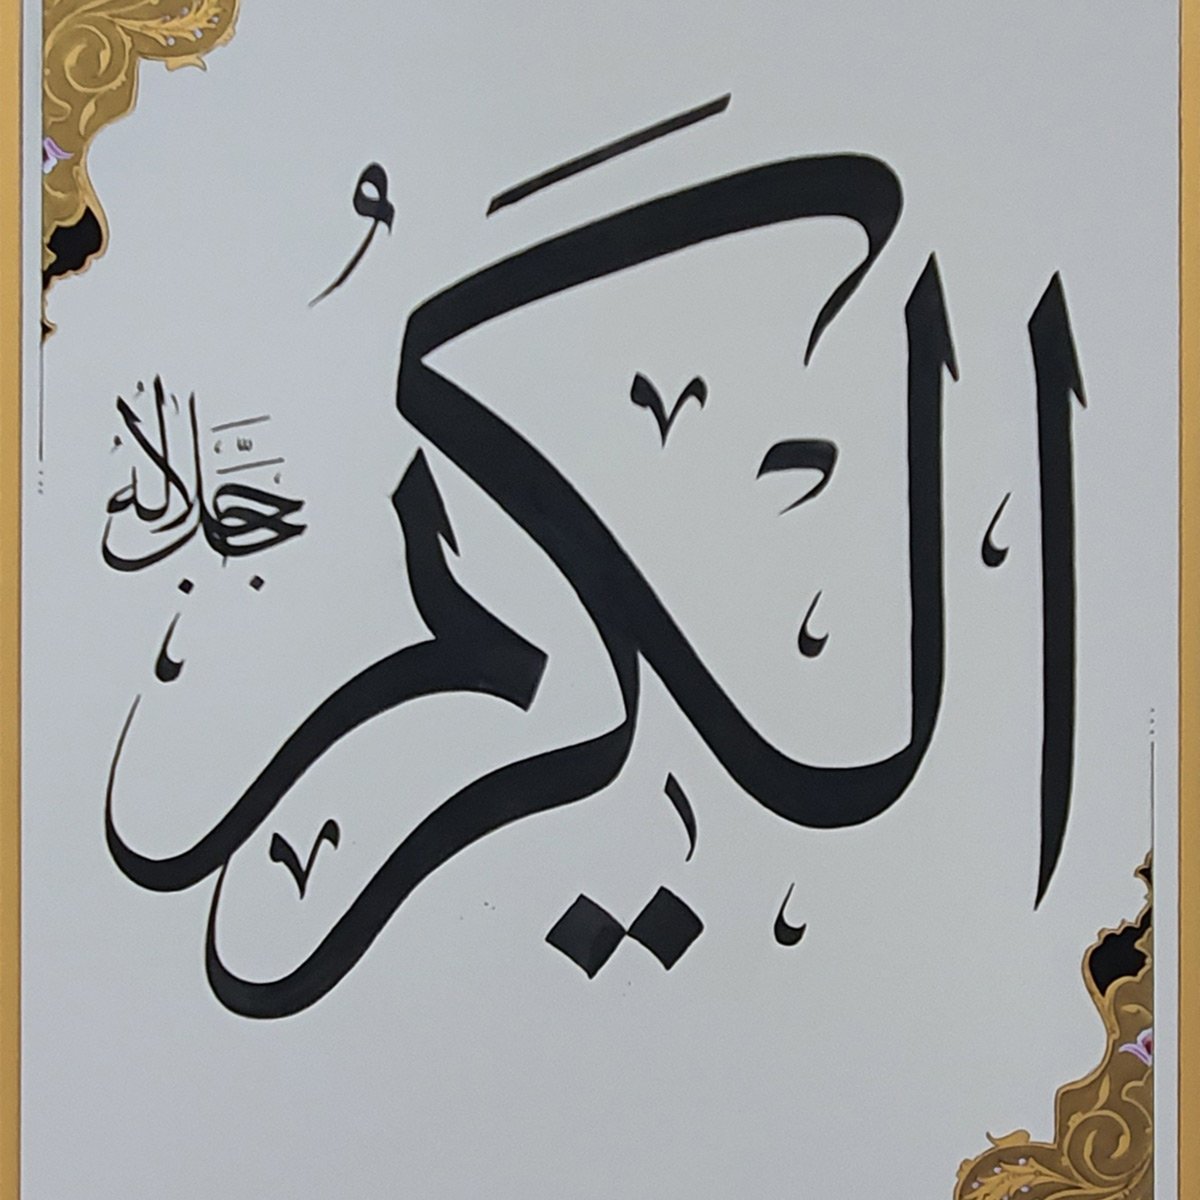 الكَريمُ
جَلَّ جَلالُهُ